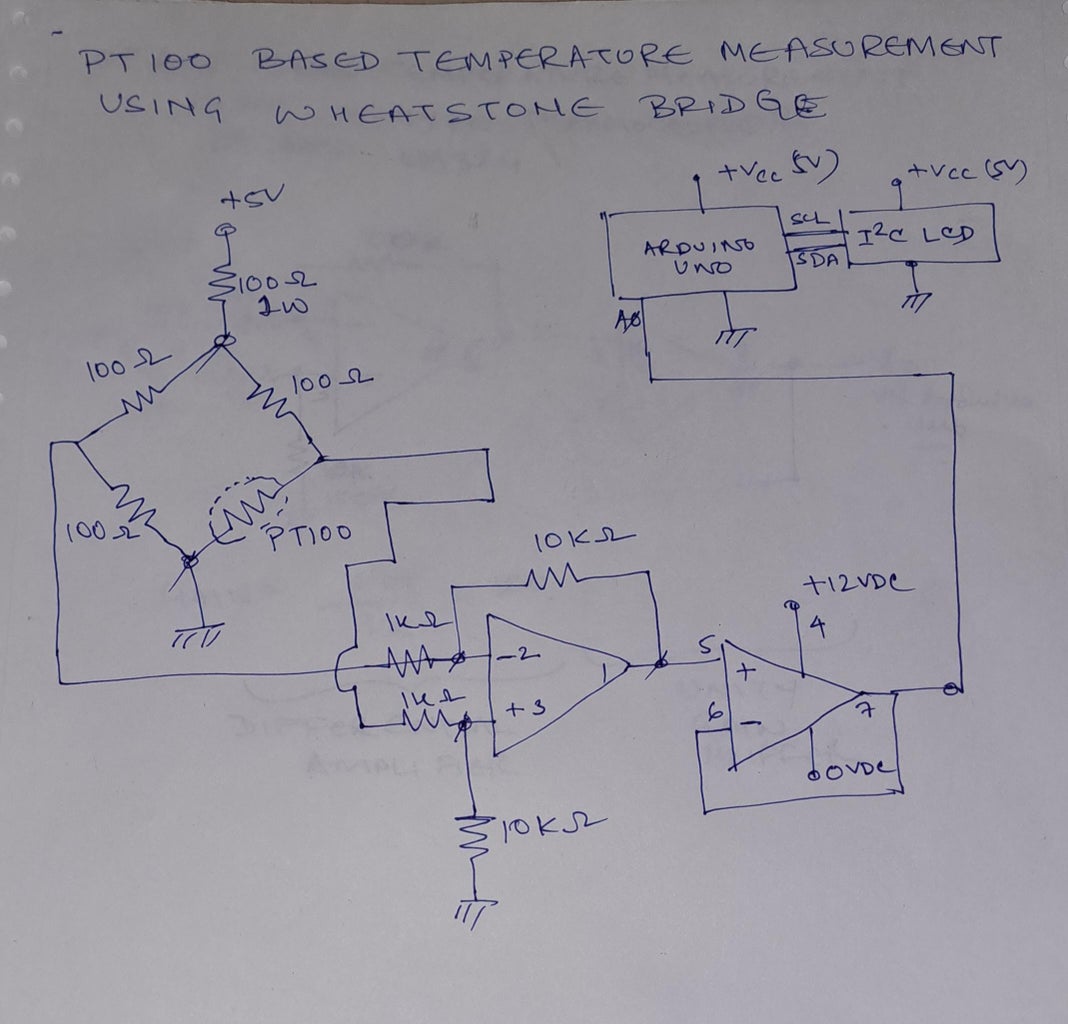 PT100 BASED TEMPERATURE MEASUREMENT
USING WHEATSTONE BRIDGE
+5V
100Ω
1W
100Ω
100Ω
100Ω
PT100
+Vcc 5V)
+Vcc (5V)
ARDUINO
UNO
SCL
SDA
I²C LCD
A0
10KΩ
1KΩ
-2
1
1KΩ
+3
10KΩ
+12VDC
4
5
+
6
-
7
0VDC